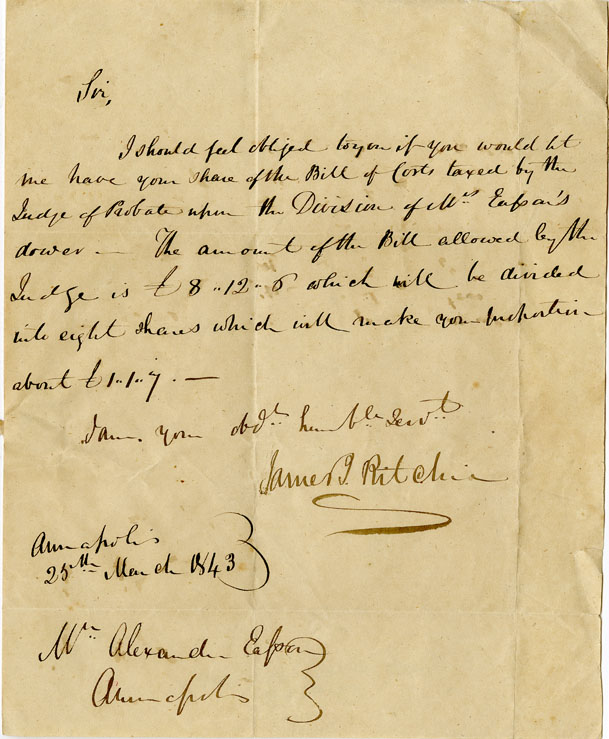 Sir,
I should feel obliged to you if you would let
me have your share of the Bill of Costs taxed by the
Judge of Probate upon the Division of Mrs Easson's
dower — The amount of the Bill allowed by the
Judge is £8..12..6 which will be divided
into eight shares which will make your proportion
about £1..1..7. —
I am. your obdt humble Servt.
James J. Ritchie
Annapolis
25th March 1843
Mr Alexander Easson
Annapolis